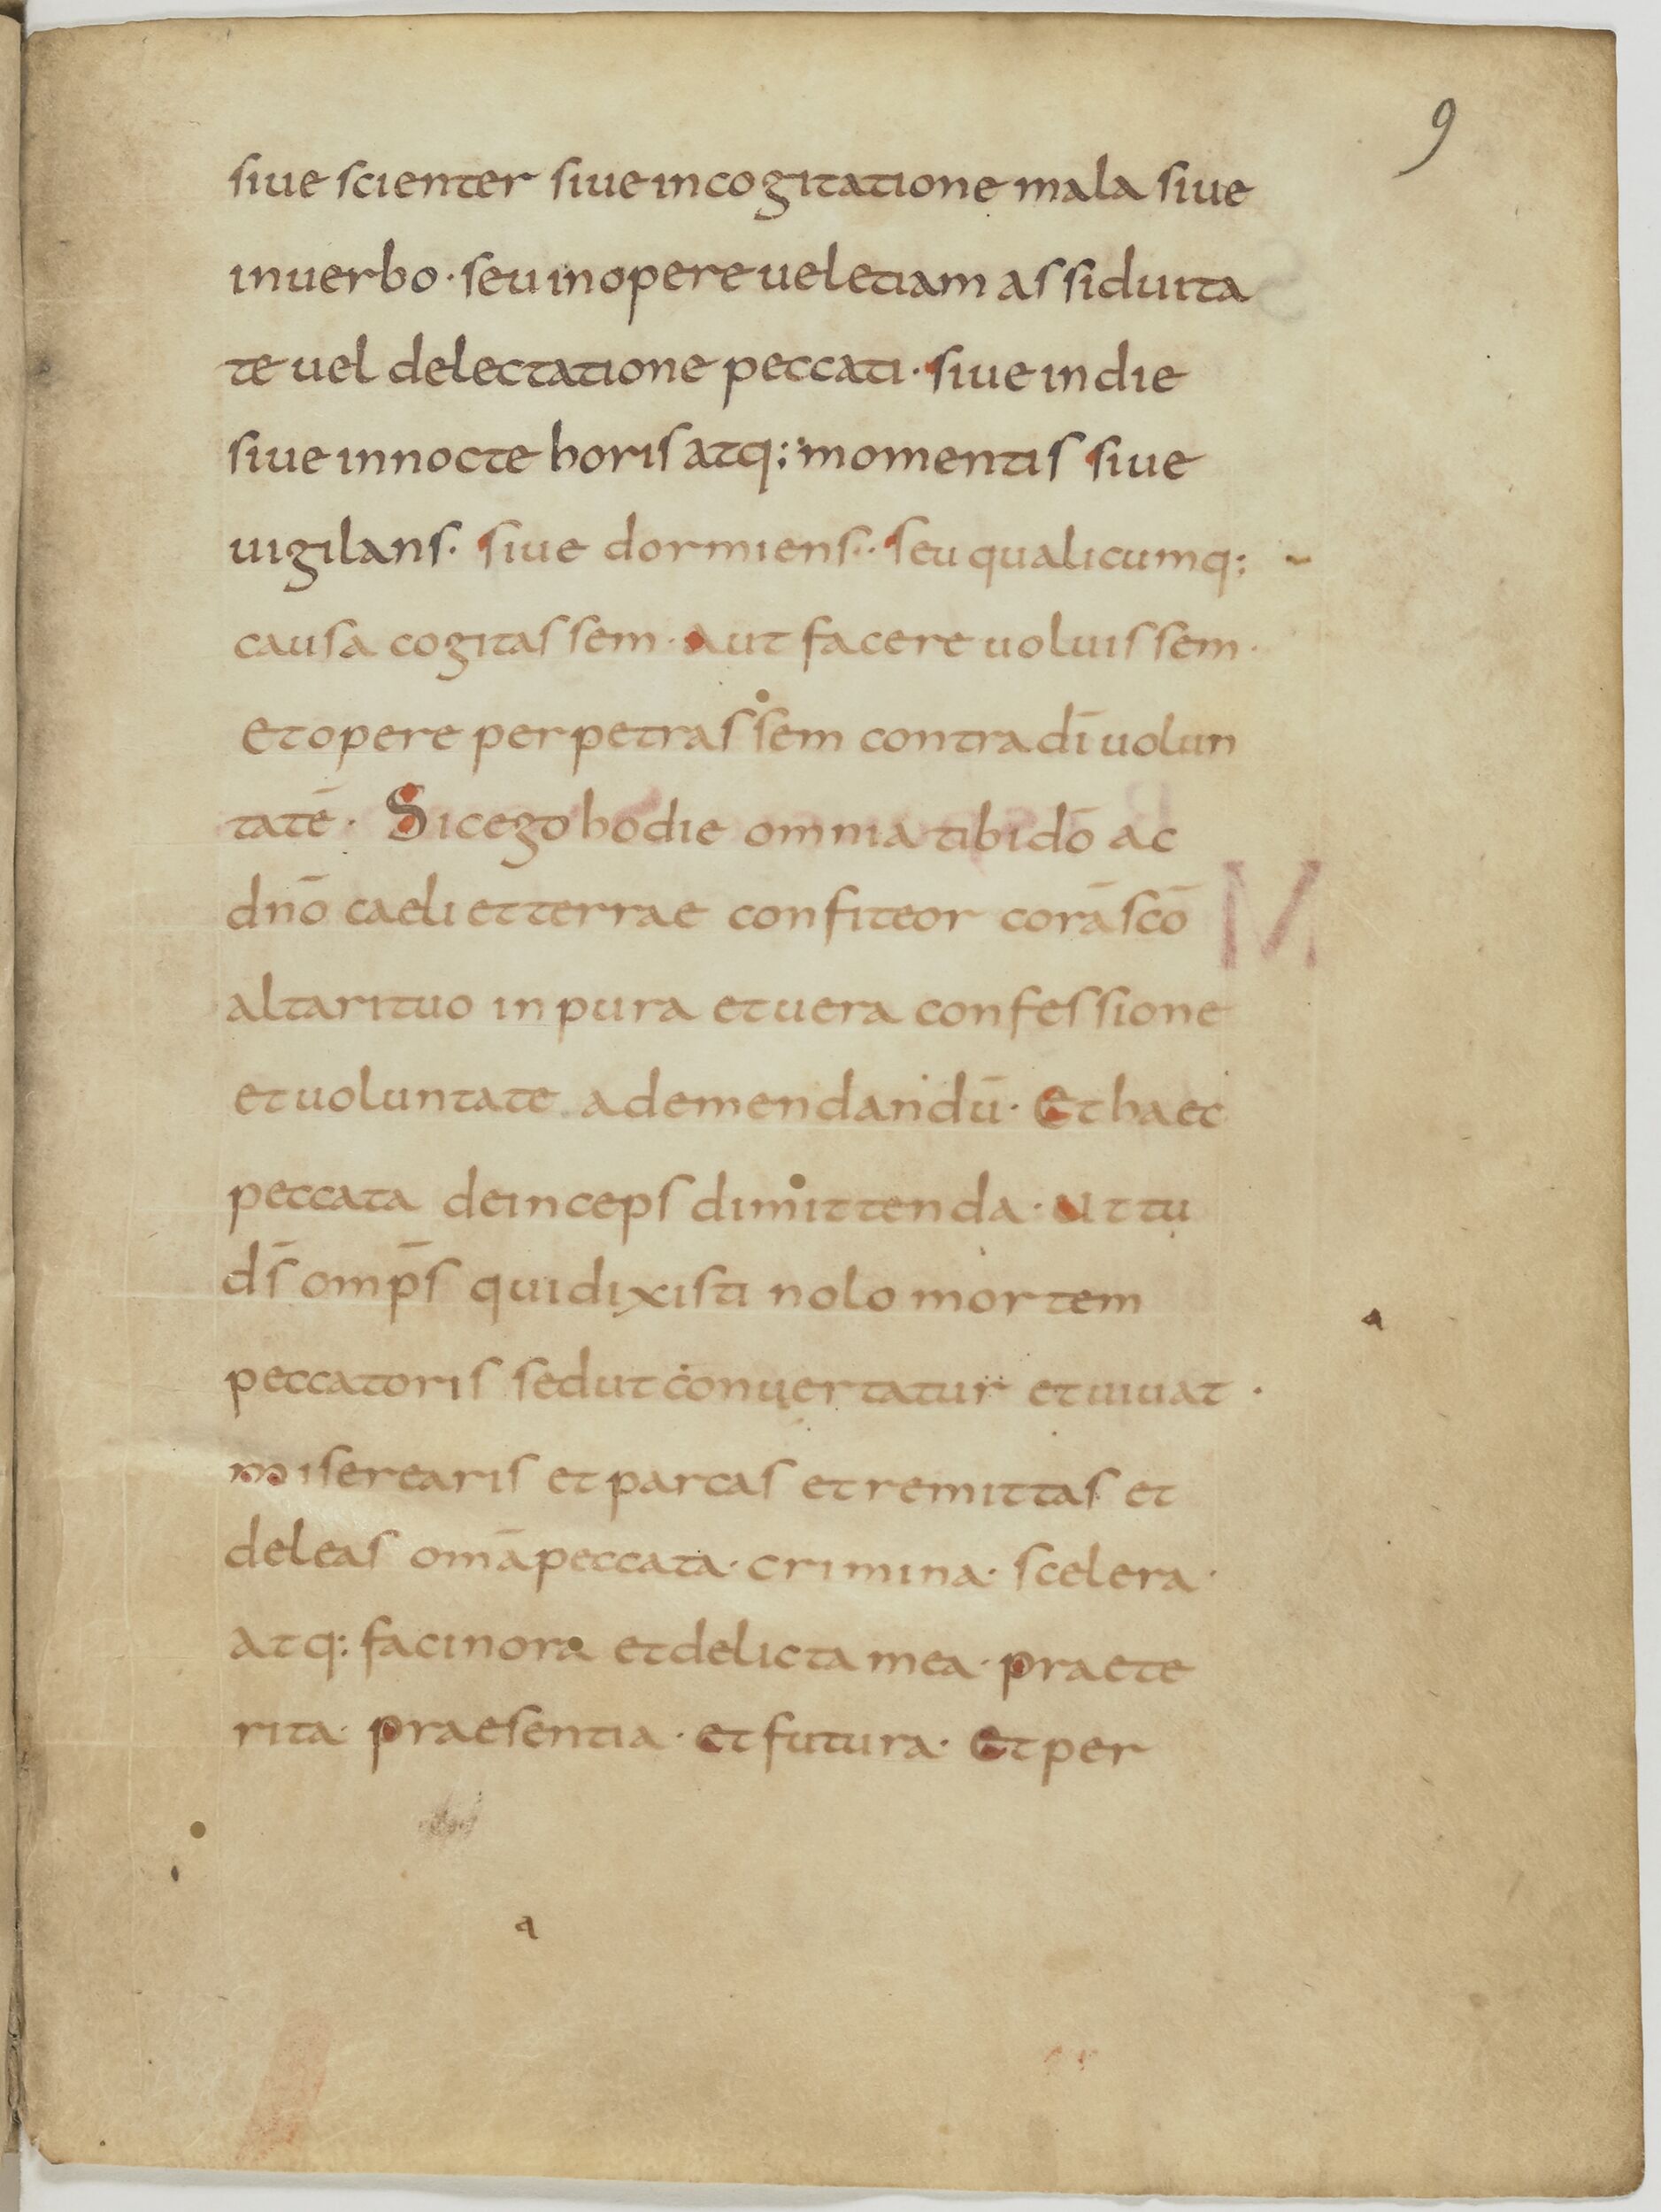 9
siue scienter siue in cogitatione mala siue
in uerbo · seu in opere uel etiam assiduita
te uel delectatione peccati · siue in die
siue in nocte horis atq: momentis siue
uigilans · siue dormiens · seu qualicumq:
causa cogitassem · aut facere uoluissem ·
et opere perpetrassem contra dī uolun
tatē · Sic ego hodie omnia tibi dō ac
dnō caeli et terrae confiteor corā scō
altari tuo in pura et uera confessione
et uoluntate ad emendandū · Et haec
peccata deinceps dimittenda · ut tu
ds̄ omp̄s qui dixisti nolo mortem
peccatoris sed ut conuertatur et uiuat ·
miserearis et parcas et remittas et
deleas omā peccata · crimina · scelera ·
atq: facinora et delicta mea · praete
rita · praesentia · et futura · Et per